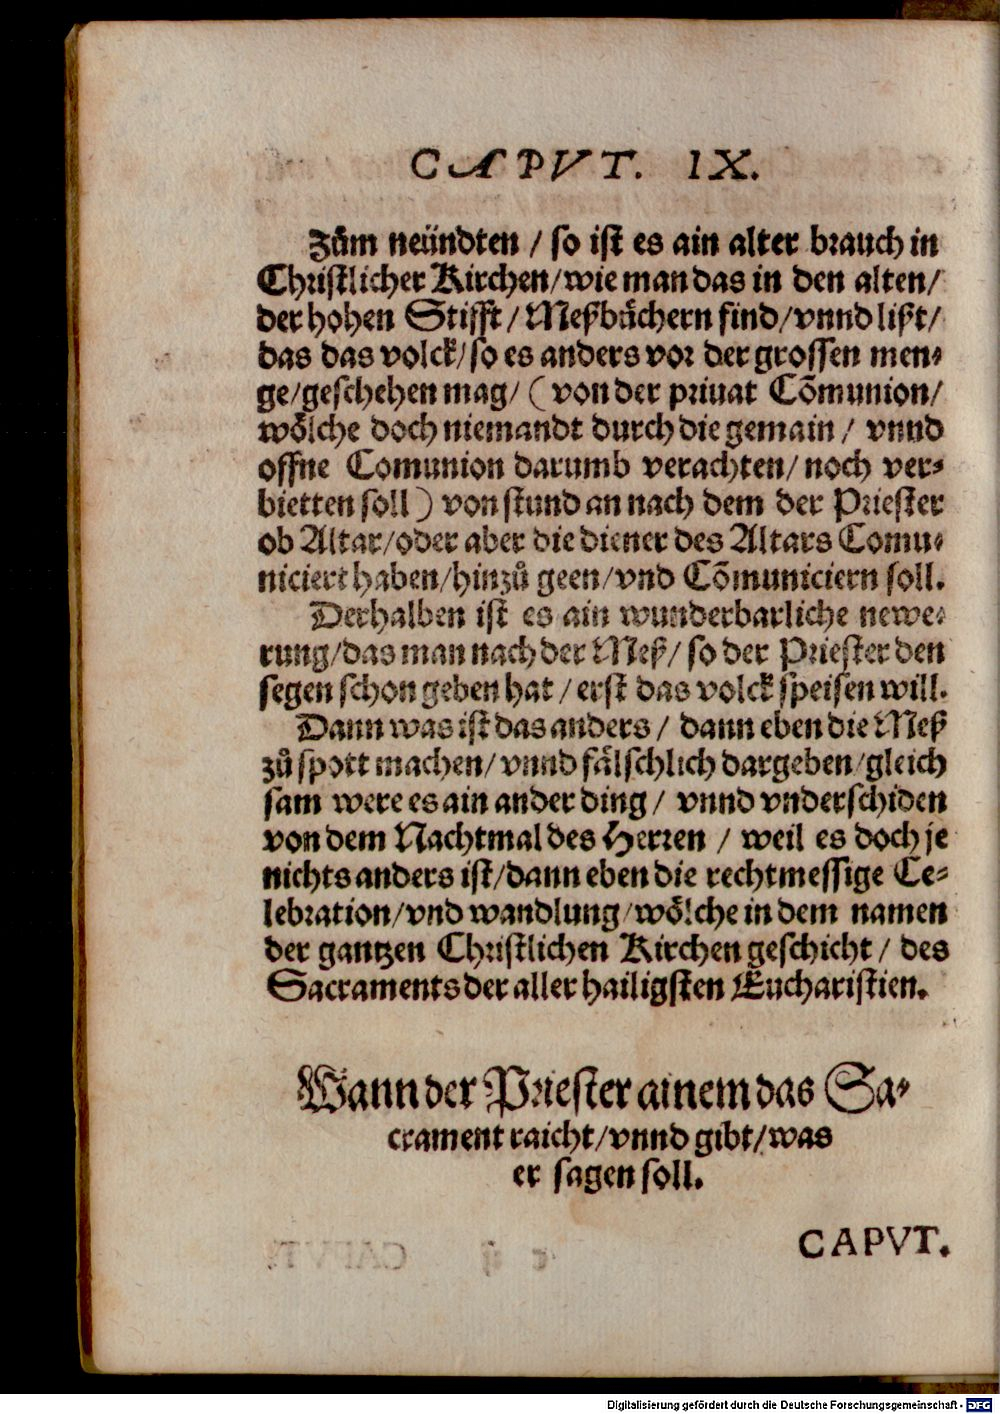 CAPVT. IX.
Zům neündten / so ist es ain alter brauch in
Christlicher Kirchen/wie man das in den alten/
der hohen Stifft / Meßbůchern find/vnnd lißt/
das das volck/so es anders vor der grossen men-
ge/geschehen mag/ (von der priuat Cõmunion/
wõlche doch niemandt durch die gemain / vnnd
offne Comunion darumb verachten/ noch ver-
bietten soll) von stund an nach dem der Priester
ob Altar/oder aber die diener des Altars Comu-
niciert haben/hinzů geen/vnd Cõmuniciern soll.
Derhalben ist es ain wunderbarliche newe-
rung/das man nach der Meß/ so der Priester den
segen schon geben hat / erst das volck speisen will.
Dann was ist das anders / dann eben die Meß
zů spott machen/ vnnd fälschlich dargeben/gleich
sam were es ain ander ding / vnnd vnderschiden
von dem Nachtmal des Herren / weil es doch je
nichts anders ist/dann eben die rechtmessige Ce-
lebration/vnd wandlung/wõlche in dem namen
der gantzen Christlichen Kirchen geschicht / des
Sacraments der aller hailigsten Eucharistien.
Wann der Priester ainem das Sa-
crament raicht/vnnd gibt/was
er sagen soll.
CAPVT.
Digitalisierung gefördert durch die Deutsche Forschungsgemeinschaft - DFG